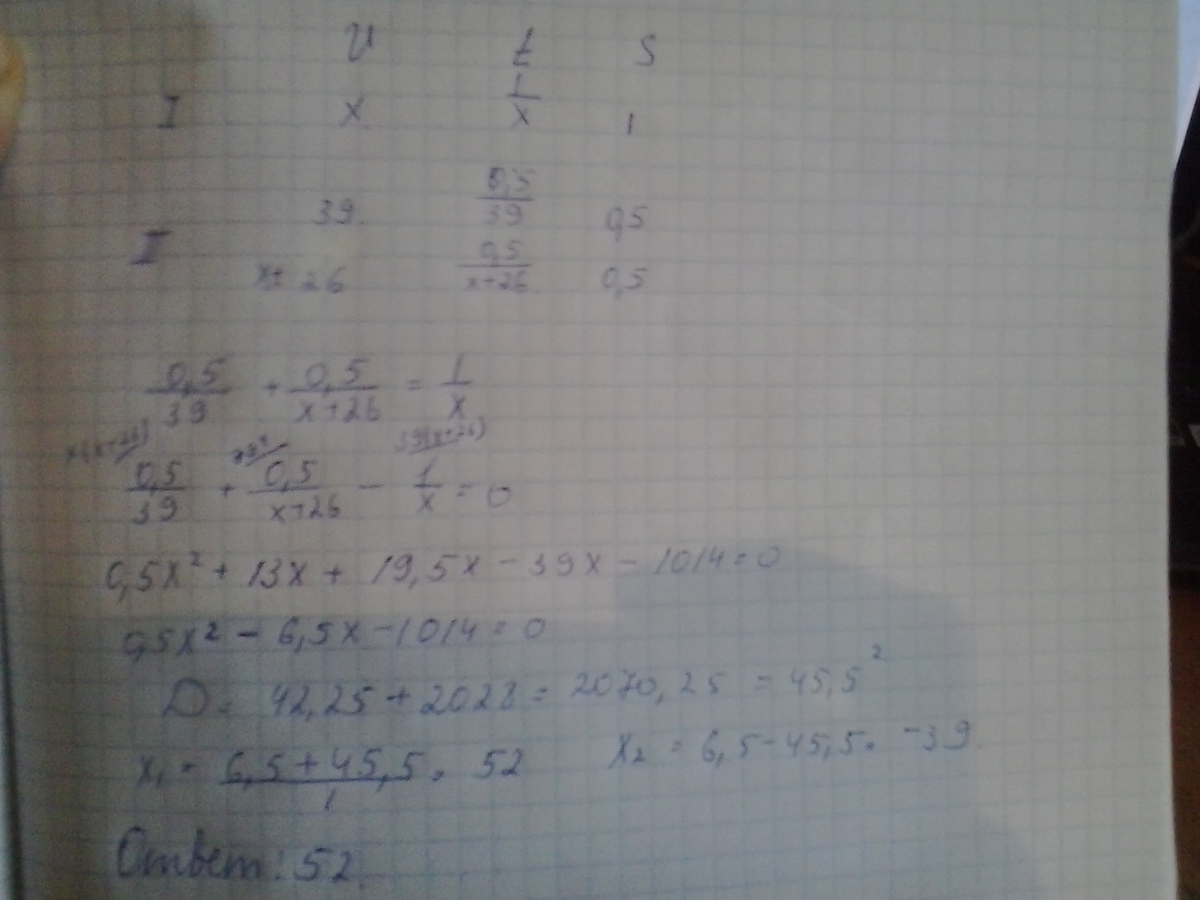 V t S
I x 1/x 1
39 0,5/39 0,5
II
x+26 0,5/x+26 0,5
0,5/39 + 0,5/x+26 = 1/x
x(x+26) 39x 39(x+26)
0,5/39 + 0,5/x+26 - 1/x = 0
0,5x² + 13x + 19,5x - 39x - 1014 = 0
0,5x² - 6,5x - 1014 = 0
D = 42,25 + 2028 = 2070,25 = 45,5²
x₁ = 6,5+45,5/1 = 52 x₂ = 6,5-45,5 = -39
Ответ: 52.